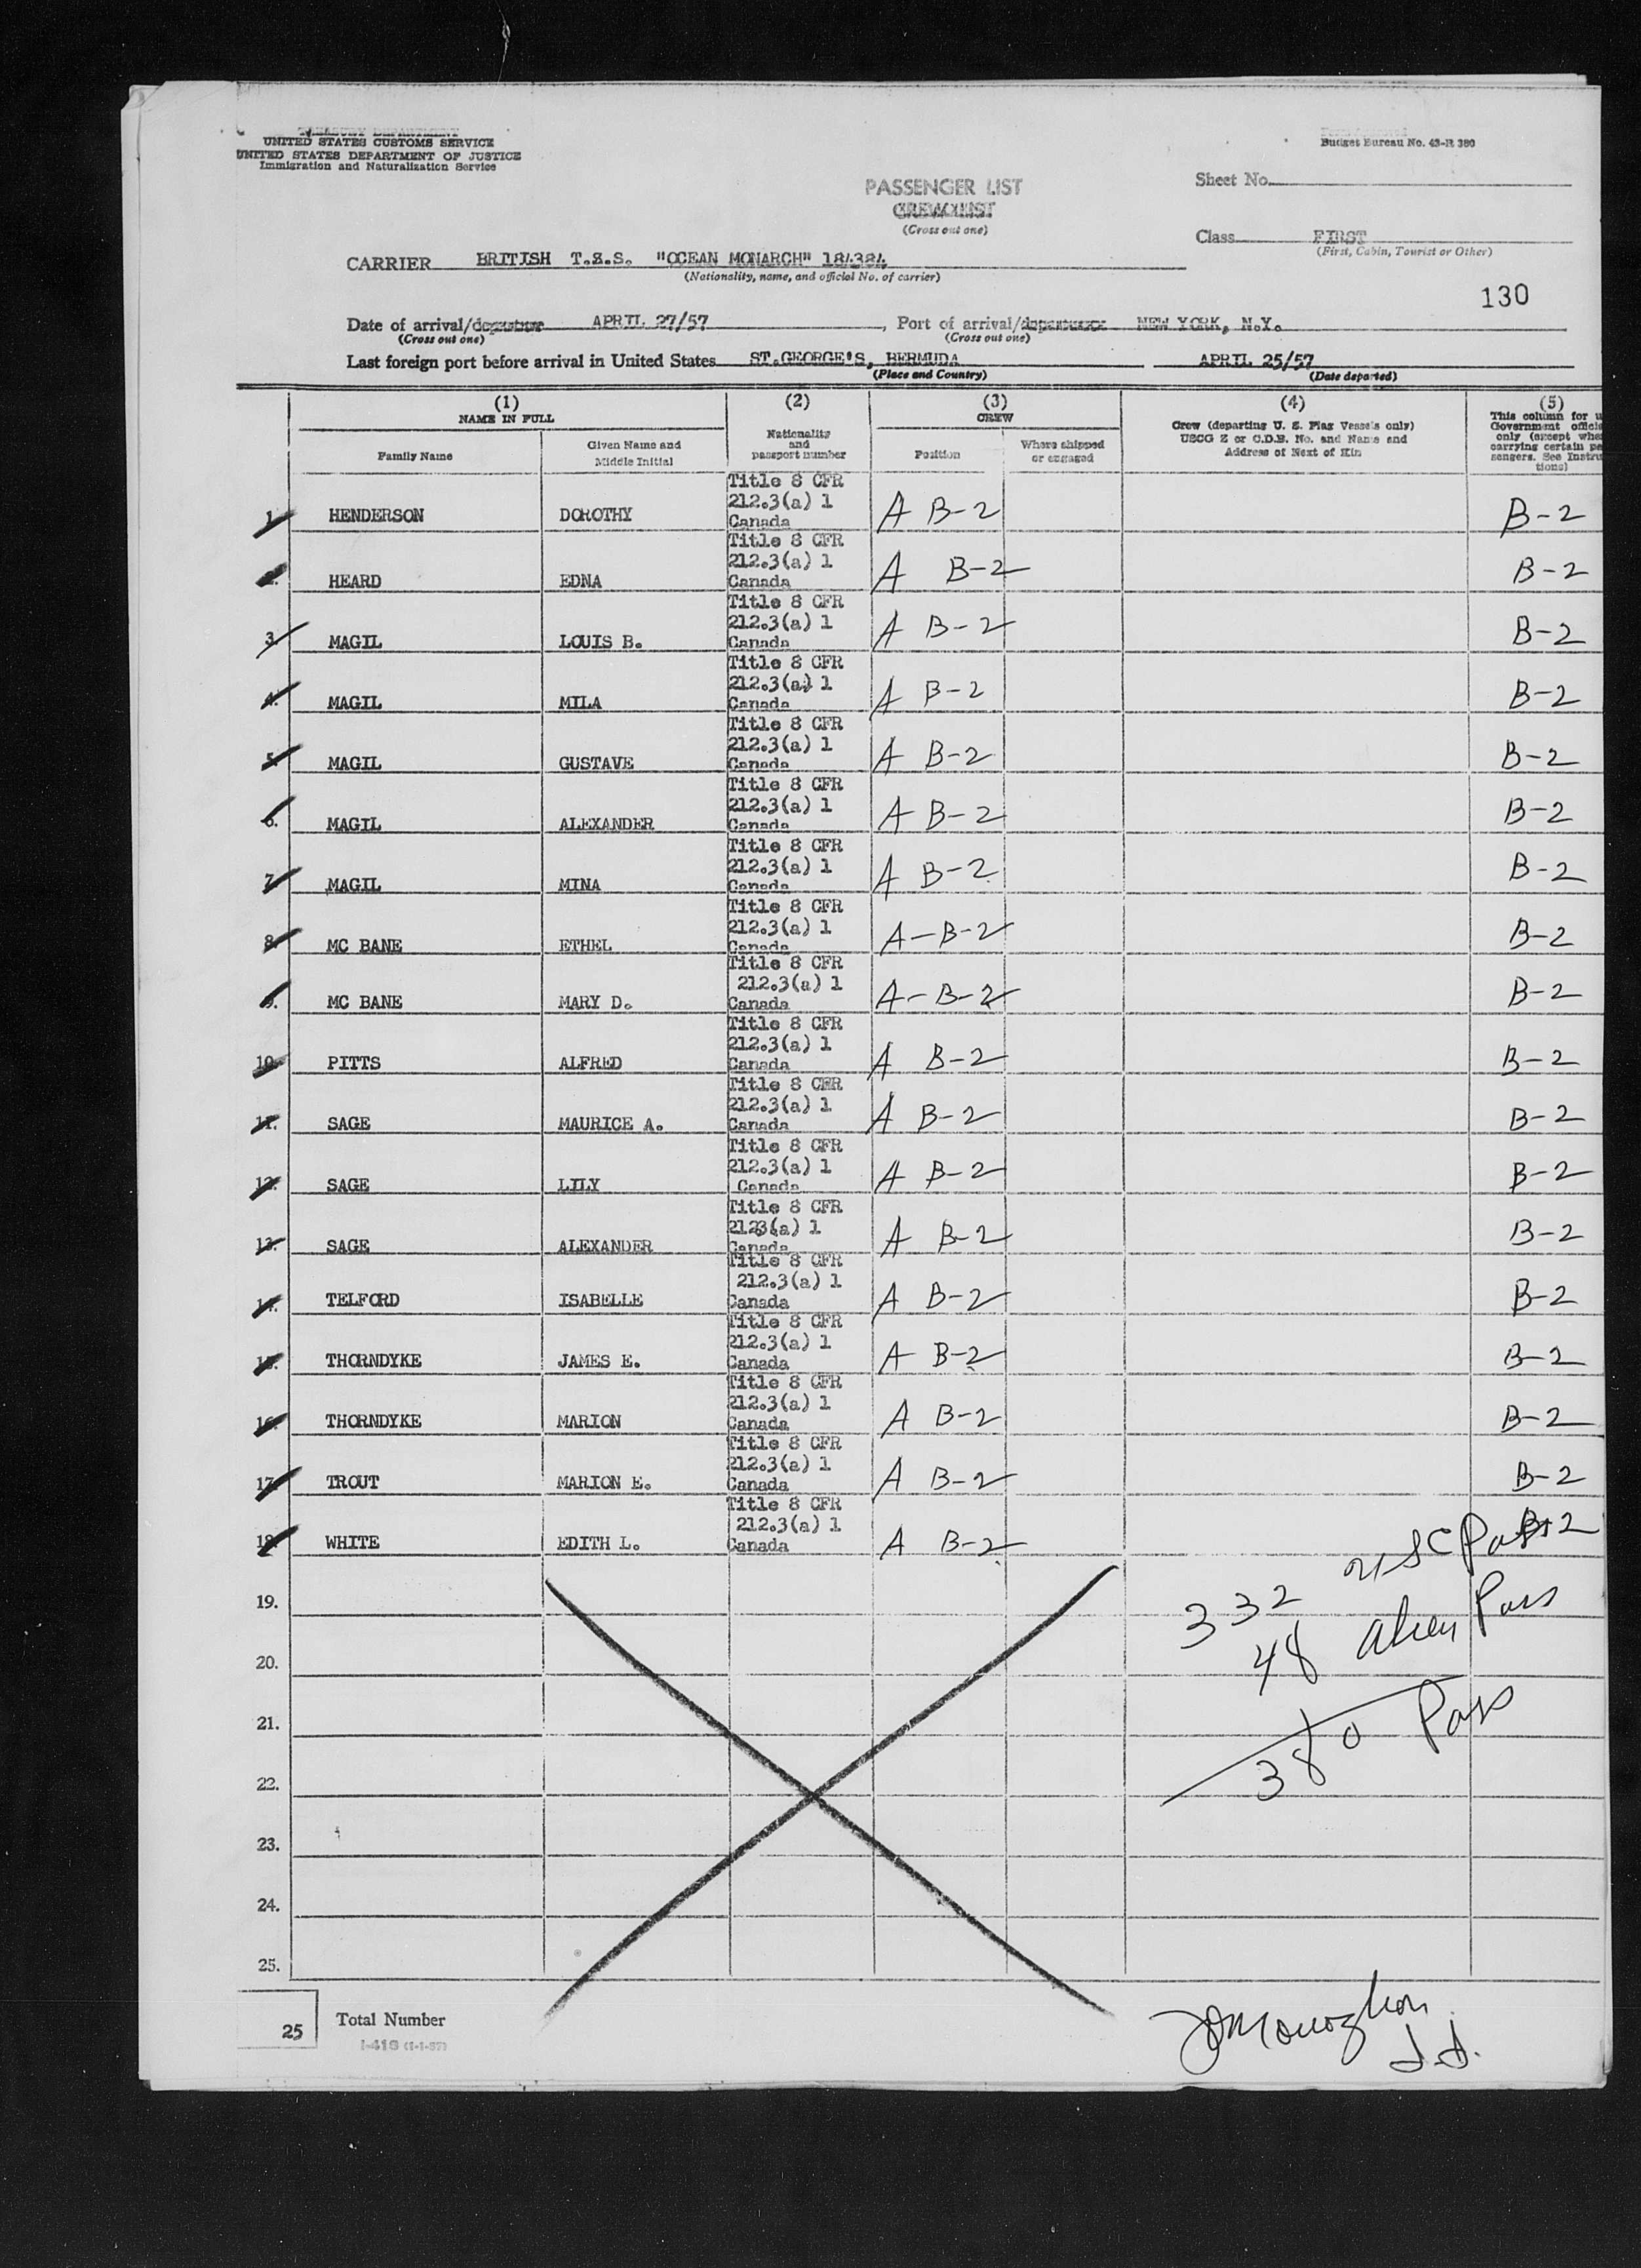 TREASURY DEPARTMENT
UNITED STATES CUSTOMS SERVICE
UNITED STATES DEPARTMENT OF JUSTICE
Immigration and Naturalization Service
Form approved
Budget Bureau No. 43-R 380
Sheet No.
PASSENGER LIST
CREW LIST
(Cross out one)
Class FIRST
(First, Cabin, Tourist or Other)
CARRIER BRITISH T.S.S. "OCEAN MONARCH" 184384
(Nationality, name, and official No. of carrier)
130
Date of arrival/departure APRIL 27/57, Port of arrival/departure NEW YORK, N.Y.
(Cross out one) (Cross out one)
Last foreign port before arrival in United States ST.GEORGE'S, BERMUDA APRIL 25/57
(Place and Country) (Date departed)
(1) (2) (3) (4) (5)
NAME IN FULL
Family Name
Given Name and
Middle Initial
Nationality
and
passport number
CREW
Position
Where shipped
or engaged
Crew (departing U. S. Flag Vessels only)
USCG Z or C.D.B. No. and Name and
Address of Next of Kin
This column for u
Government officia
only (except whe
carrying certain pa
sengers. See Instru
tions)
Title 8 CFR
212.3(a) 1
1. HENDERSON DOROTHY Canada A B-2 B-2
Title 8 CFR
212.3(a) 1
2. HEARD EDNA Canada A B-2 B-2
Title 8 CFR
212.3(a) 1
3. MAGIL LOUIS B. Canada A B-2 B-2
Title 8 CFR
212.3(a) 1
4. MAGIL MILA Canada A B-2 B-2
Title 8 CFR
212.3(a) 1
5. MAGIL GUSTAVE Canada A B-2 B-2
Title 8 CFR
212.3(a) 1
6. MAGIL ALEXANDER Canada A B-2 B-2
Title 8 CFR
212.3(a) 1
7. MAGIL MINA Canada A B-2 B-2
Title 8 CFR
212.3(a) 1
8. MC BANE ETHEL Canada A-B-2 B-2
Title 8 CFR
212.3(a) 1
9. MC BANE MARY D. Canada A-B-2 B-2
Title 8 CFR
212.3(a) 1
10. PITTS ALFRED Canada A B-2 B-2
Title 8 CFR
212.3(a) 1
11. SAGE MAURICE A. Canada A B-2 B-2
Title 8 CFR
212.3(a) 1
12. SAGE LILY Canada A B-2 B-2
Title 8 CFR
2123(a) 1
13. SAGE ALEXANDER Canada A B-2 B-2
Title 8 CFR
212.3(a) 1
14. TELFORD ISABELLE Canada A B-2 B-2
Title 8 CFR
212.3(a) 1
15. THORNDYKE JAMES E. Canada A B-2 B-2
Title 8 CFR
212.3(a) 1
16. THORNDYKE MARION Canada A B-2 B-2
Title 8 CFR
212.3(a) 1
17. TROUT MARION E. Canada A B-2 B-2
Title 8 CFR
212.3(a) 1
18. WHITE EDITH L. Canada A B-2 B-2
19. 332 USC Pass
20. 48 alien Pass
21. 380 Pass
22.
23.
24.
25.
25 Total Number
I-418 (1-1-57)